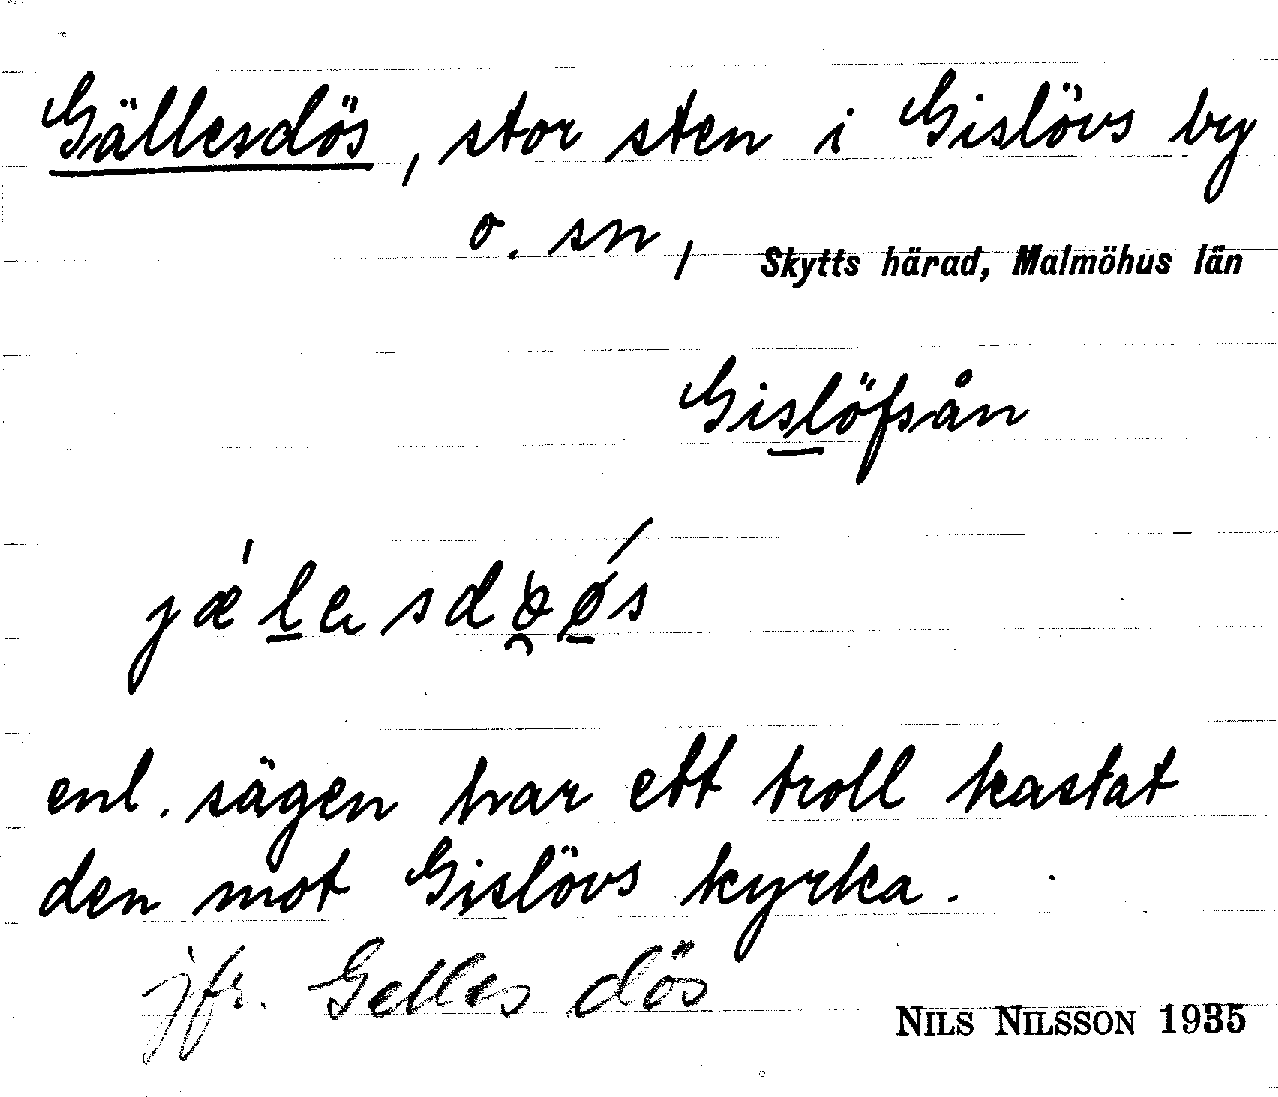 Gällesdös, stor sten i Gislövs by
o. sn, Skytts härad, Malmöhus län
Gislöfsån
enl. sägen har ett troll kastat
den mot Gislövs kyrka.
jfr. Gelles dös
NILS NILSSON 1935